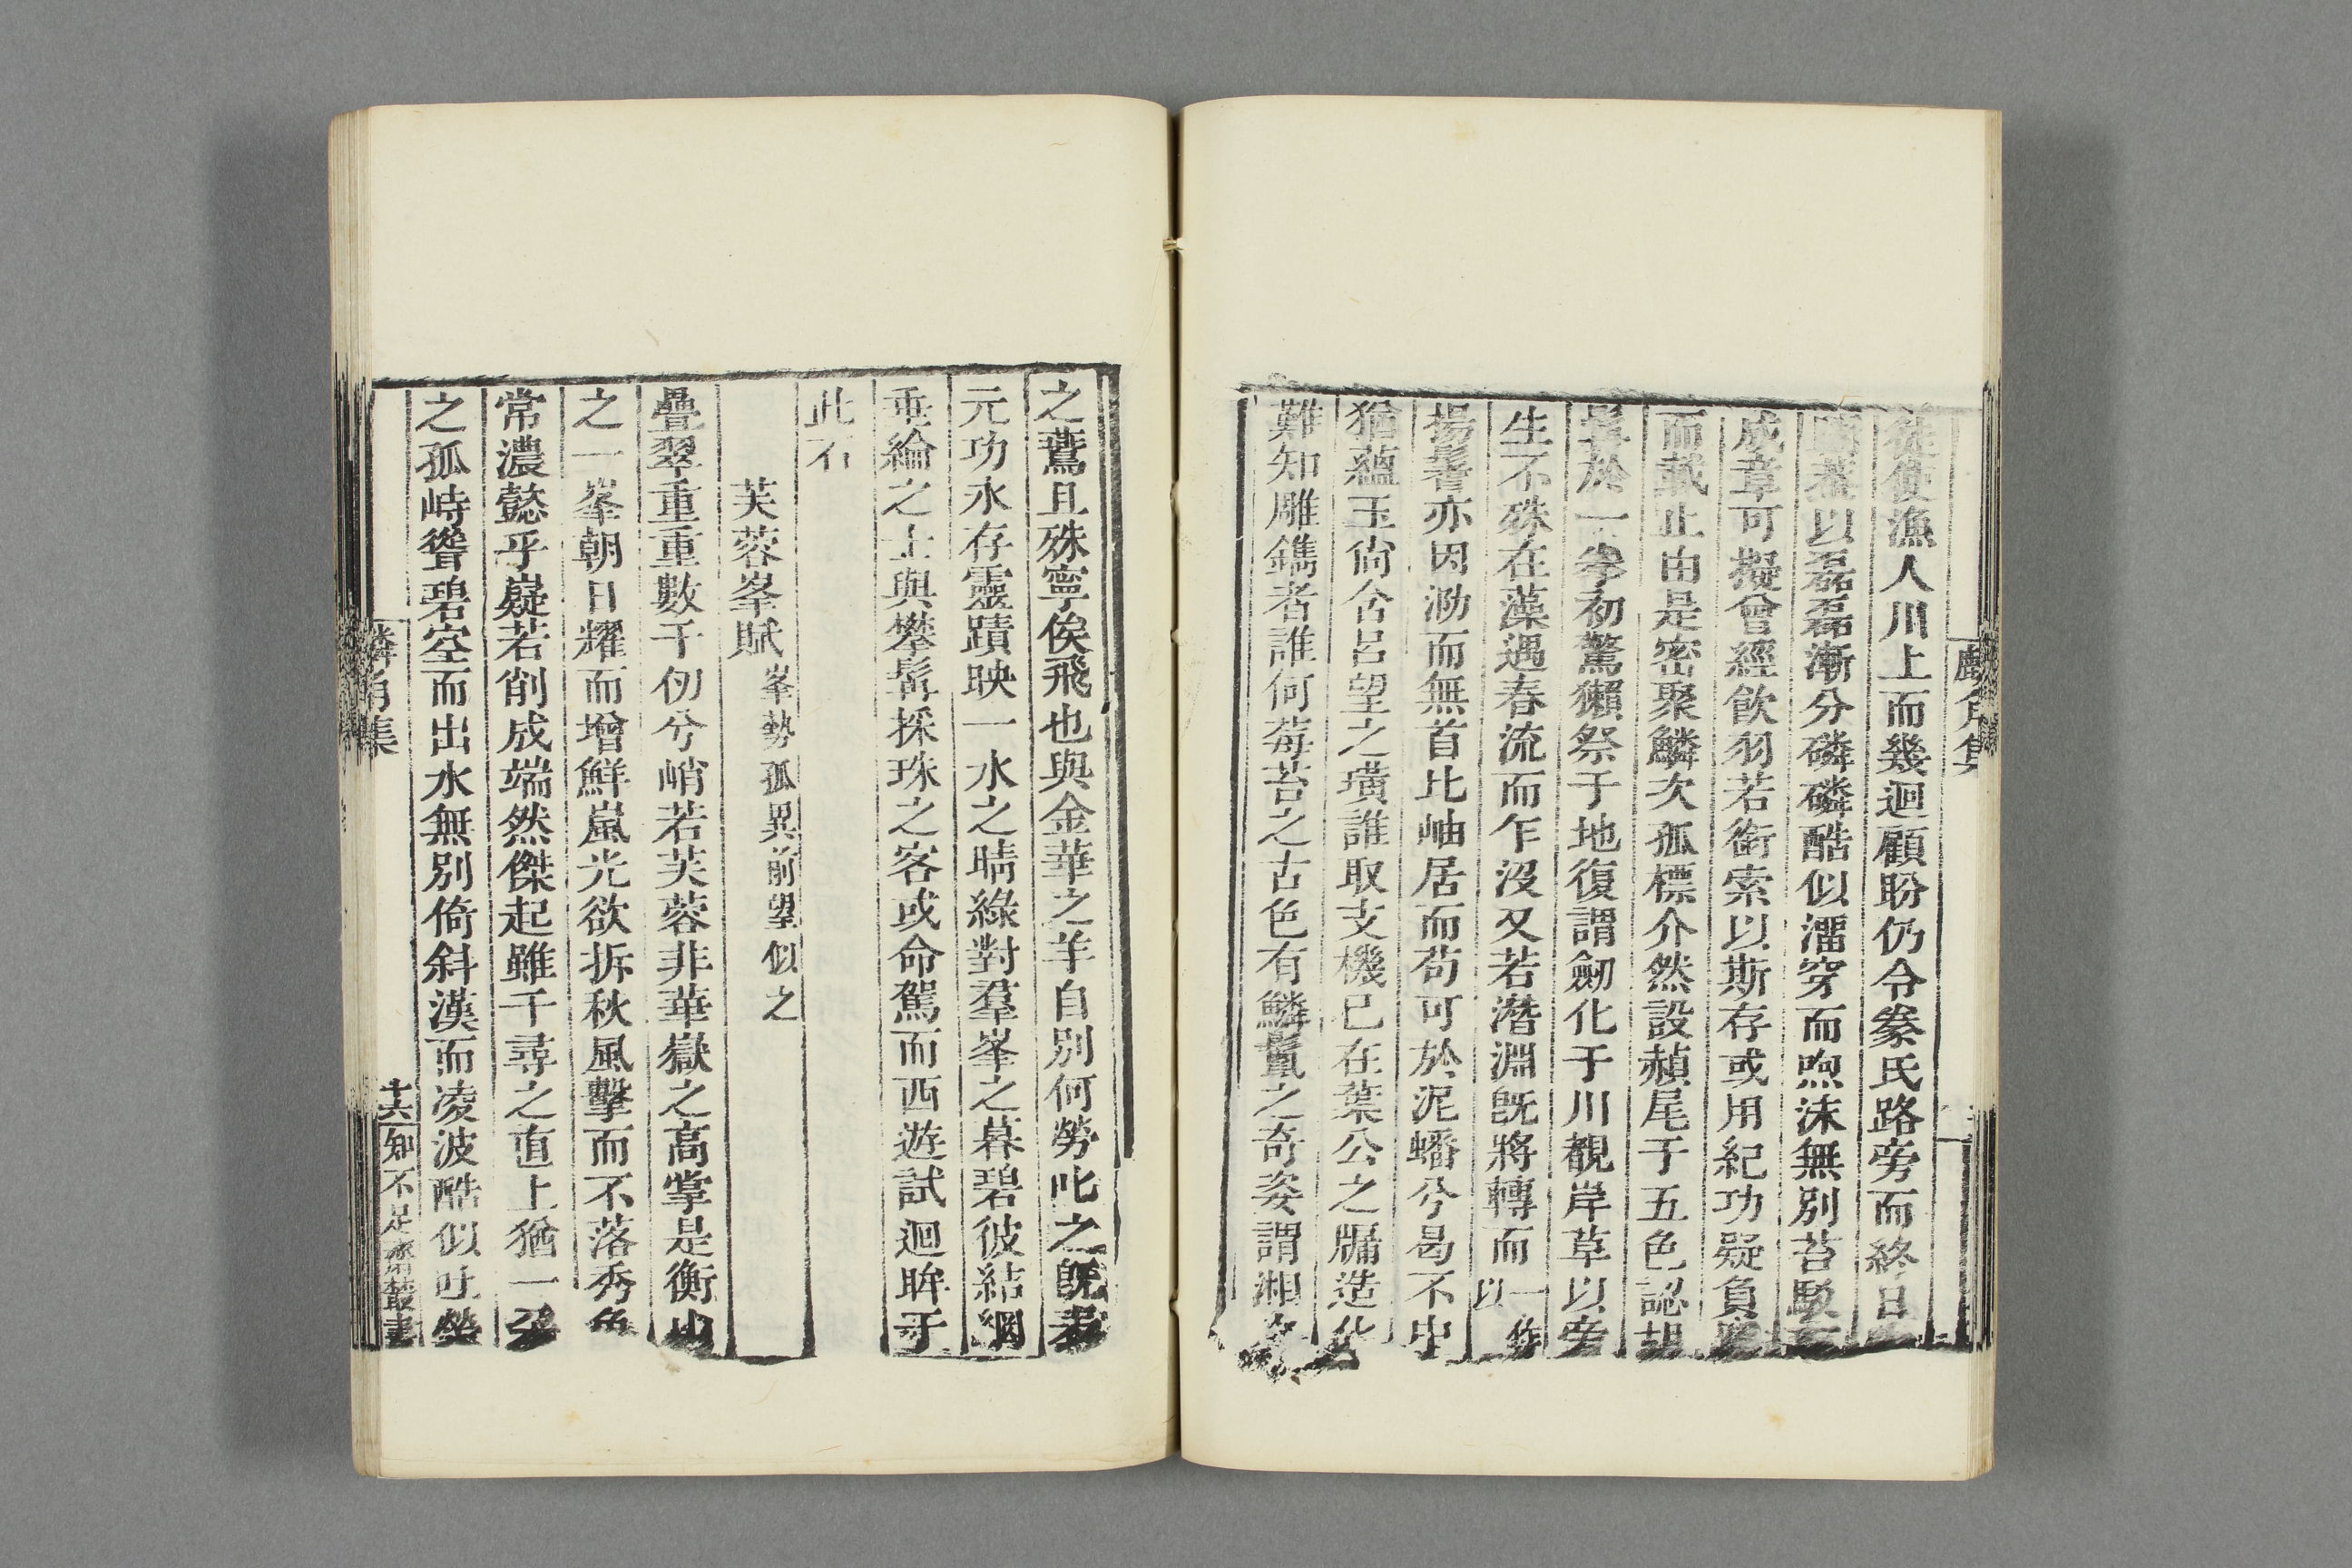 徒使漁人川上而幾迴顧盼仍令豢氏路旁而終日
以磊磊漸分磷磷酷似㵽穿而喣沫無別苔駁
成章可擬曾經飲羽若銜索以斯存或用紀功疑負
而載止由是密聚鱗次孤標介然設赬尾于五色認胡
鬐於一拳初驚獺祭于地復謂劒化于川覩岸草以旁
生不殊在藻遇春流而乍沒又若濳淵旣將轉而一作以
揚鬐亦因泐而無首比岫居而苟可於泥蟠兮曷不中
猶蘊玉尙含呂望之璜誰取支機已在葉公之牖造化
難知雕鐫者誰何莓苔之古色有鱗鬣之奇姿謂湘
之鷰且殊寧俟飛也與金華之羊自別何勞叱之旣表
元功永存靈蹟映一水之晴綠對羣峯之暮碧彼結網
垂綸之士與攀髯採珠之客或命駕而西遊試迴眸乎
此石
芙蓉峯賦峯勢孤異前望似之
疊翠重重數千仞兮峭若芙蓉非華嶽之高掌是衡山
之一峯朝日耀而增鮮嵐光欲拆秋風擊而不落秀色
常濃懿乎嶷若削成端然傑起雖千尋之直上猶一朶
之孤峙聳碧空而出水無別倚斜漢而凌波酷似吐榮
麟角集
十六
知不足齋叢書